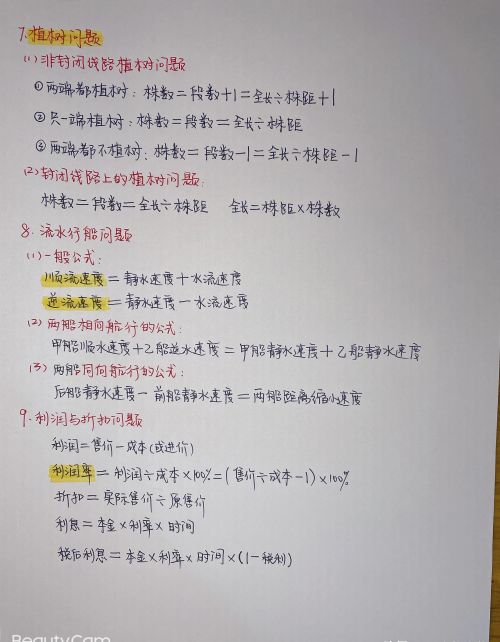 7.植树问题
(1)非封闭线路植树问题
①两端都植树：株数=段数+1=全长÷株距+1
②只一端植树：株数=段数=全长÷株距
③两端都不植树：株数=段数-1=全长÷株距-1
(2)封闭线路上的植树问题：
株数=段数=全长÷株距 全长=株距×株数
8.流水行船问题
(1)一般公式：
顺流速度=静水速度+水流速度
逆流速度=静水速度-水流速度
(2)两船相向航行的公式：
甲船顺水速度+乙船逆水速度=甲船静水速度+乙船静水速度
(3)两船同向航行的公式：
后船静水速度-前船静水速度=两船距离缩小速度
9.利润与折扣问题
利润=售价-成本(或进价)
利润率=利润÷成本×100%=(售价÷成本-1)×100%
折扣=实际售价÷原售价
利息=本金×利率×时间
税后利息=本金×利率×时间×(1-税利)
BeautyCam